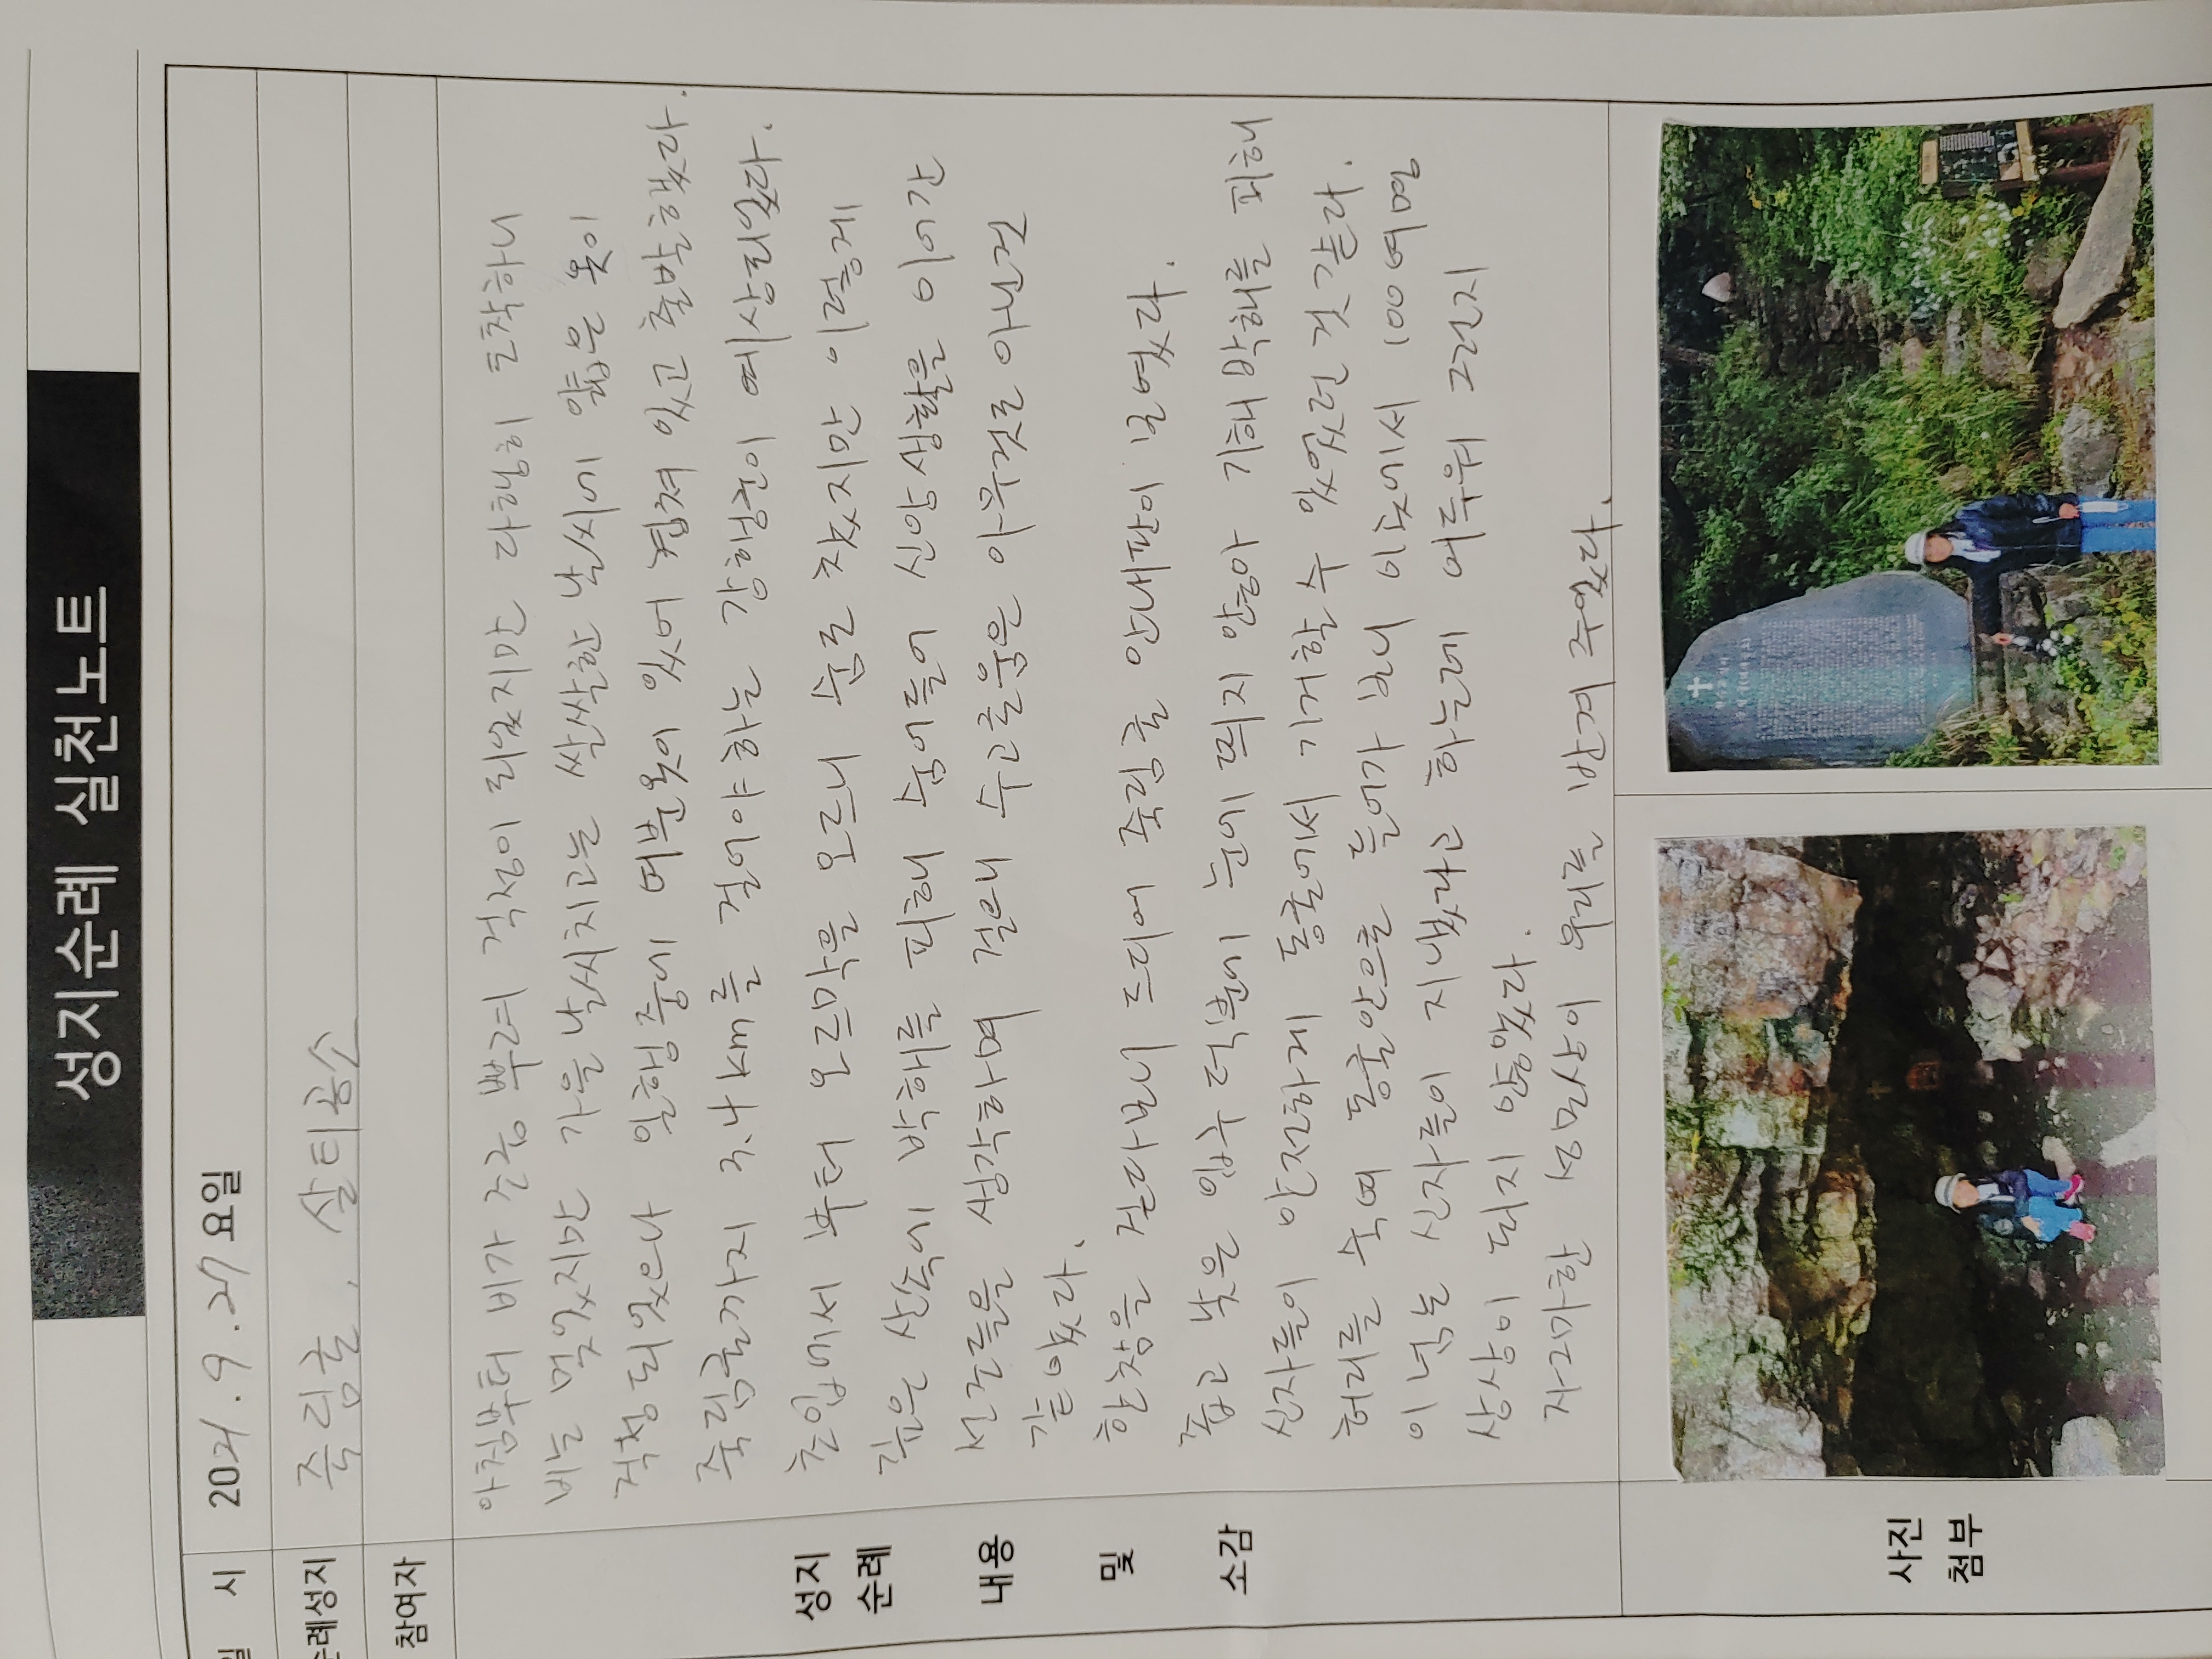 성지순례 실천노트
일 시
2021.9.27 요일
순례성지
죽림굴, 살티공소
참여자
아침부터 비가 조금 뿌려 걱정이 되었지만 다행히 도착하니
비는 멎었지만 가을날씨치고는 쌀쌀한 날씨에 얇은 옷이
걱정되었으나 일행중에 여분옷이 있어 겹쳐 입고 출발했다.
죽림굴까지 3.4km를 걸어야하는 강행군이 예상되었다.
초입에서 부터 오르막을 오르니 숨도 찼지만 이렇게
깊은 산속에 박해를 피해 숨어들어 신앙생활을 이어간
선조들을 생각하며 걸으니 수고로움은 아무것도 아닌것
같았다.
한참을 걷다보니 드디어 죽림굴 안내판이 보였다.
좁고 낮은 입구 덕분에 눈에 띄지 않아 기해박해를 피해
신자들이 안전하게 동굴에서 기거할 수 있었던 것 같다.
허리를 숙여 동굴안으로 들어가 보니 이곳에서 100여명
이 넘는 신자들이 지냈다고 하는데 어두워 그런지
상상이 되지 않았다.
자그마한 성모상이 우리를 반겨 주었다.
성지
순례
내용
및
소감
사진
첨부